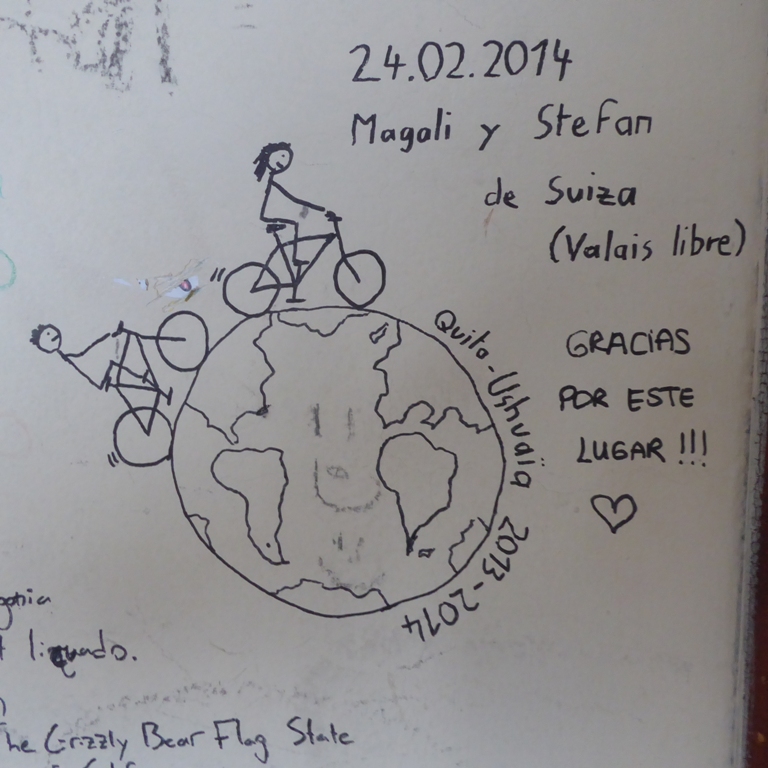 24.02.2014
Magali y Stefan
de Suiza
(Valais libre)
Quito - Ushuaïa 2013-2014
GRACIAS
POR ESTE
LUGAR !!!
The Grizzly Bear Flag State